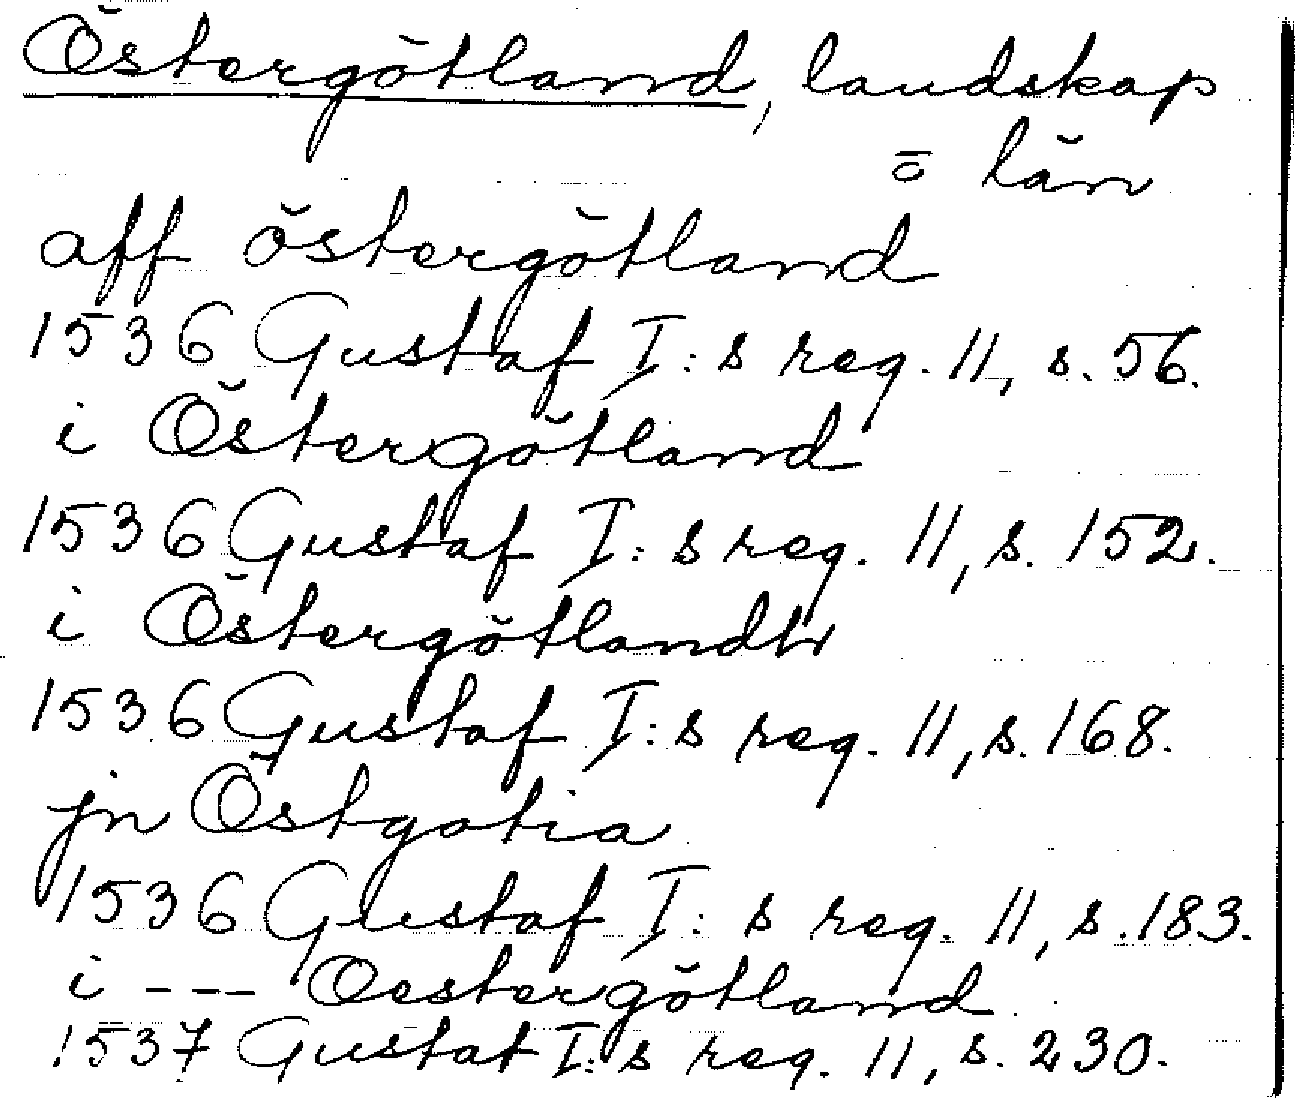 Östergötland, landskap
o län
aff östergötland
1536 Gustaf I:s reg. 11, s. 56.
i Östergötland
1536 Gustaf I:s reg. 11, s. 152.
i Östergötlandh
1536 Gustaf I:s reg. 11, s. 168.
jn Östgotia
1536 Gustaf I:s reg. 11, s. 183.
i --- Oestergötland
1537 Gustaf I:s reg. 11, s. 230.